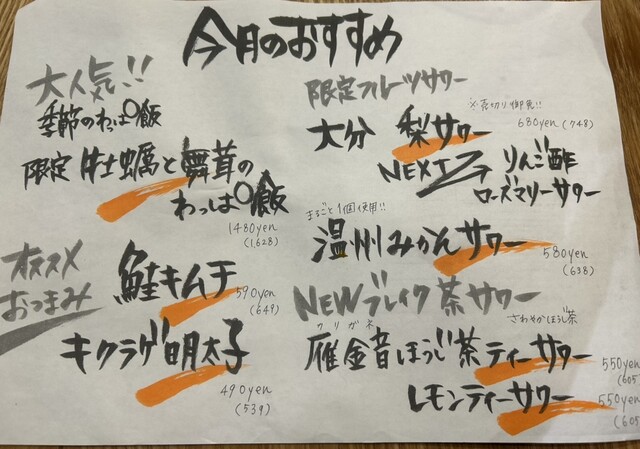 今月のおすすめ
大人気!!
季節のわっぱ飯
限定 牡蠣と舞茸の
わっぱ飯
1480yen
(1,628)
オススメ
おつまみ
鮭キムチ
590yen
(649)
キクラゲ明太子
490yen
(539)
限定フルーツサワー
※売切り御免!!
大分 梨サワー
680yen(748)
NEXT→りんご酢
ローズマリーサワー
まるごと1個使用!!
温州みかんサワー
580yen
(638)
NEWブレイク茶サワー
さわやかほうじ茶
カリガネ
雁金音ほうじ茶ティーサワー
550yen
(605
レモンティーサワー
550yen
(605